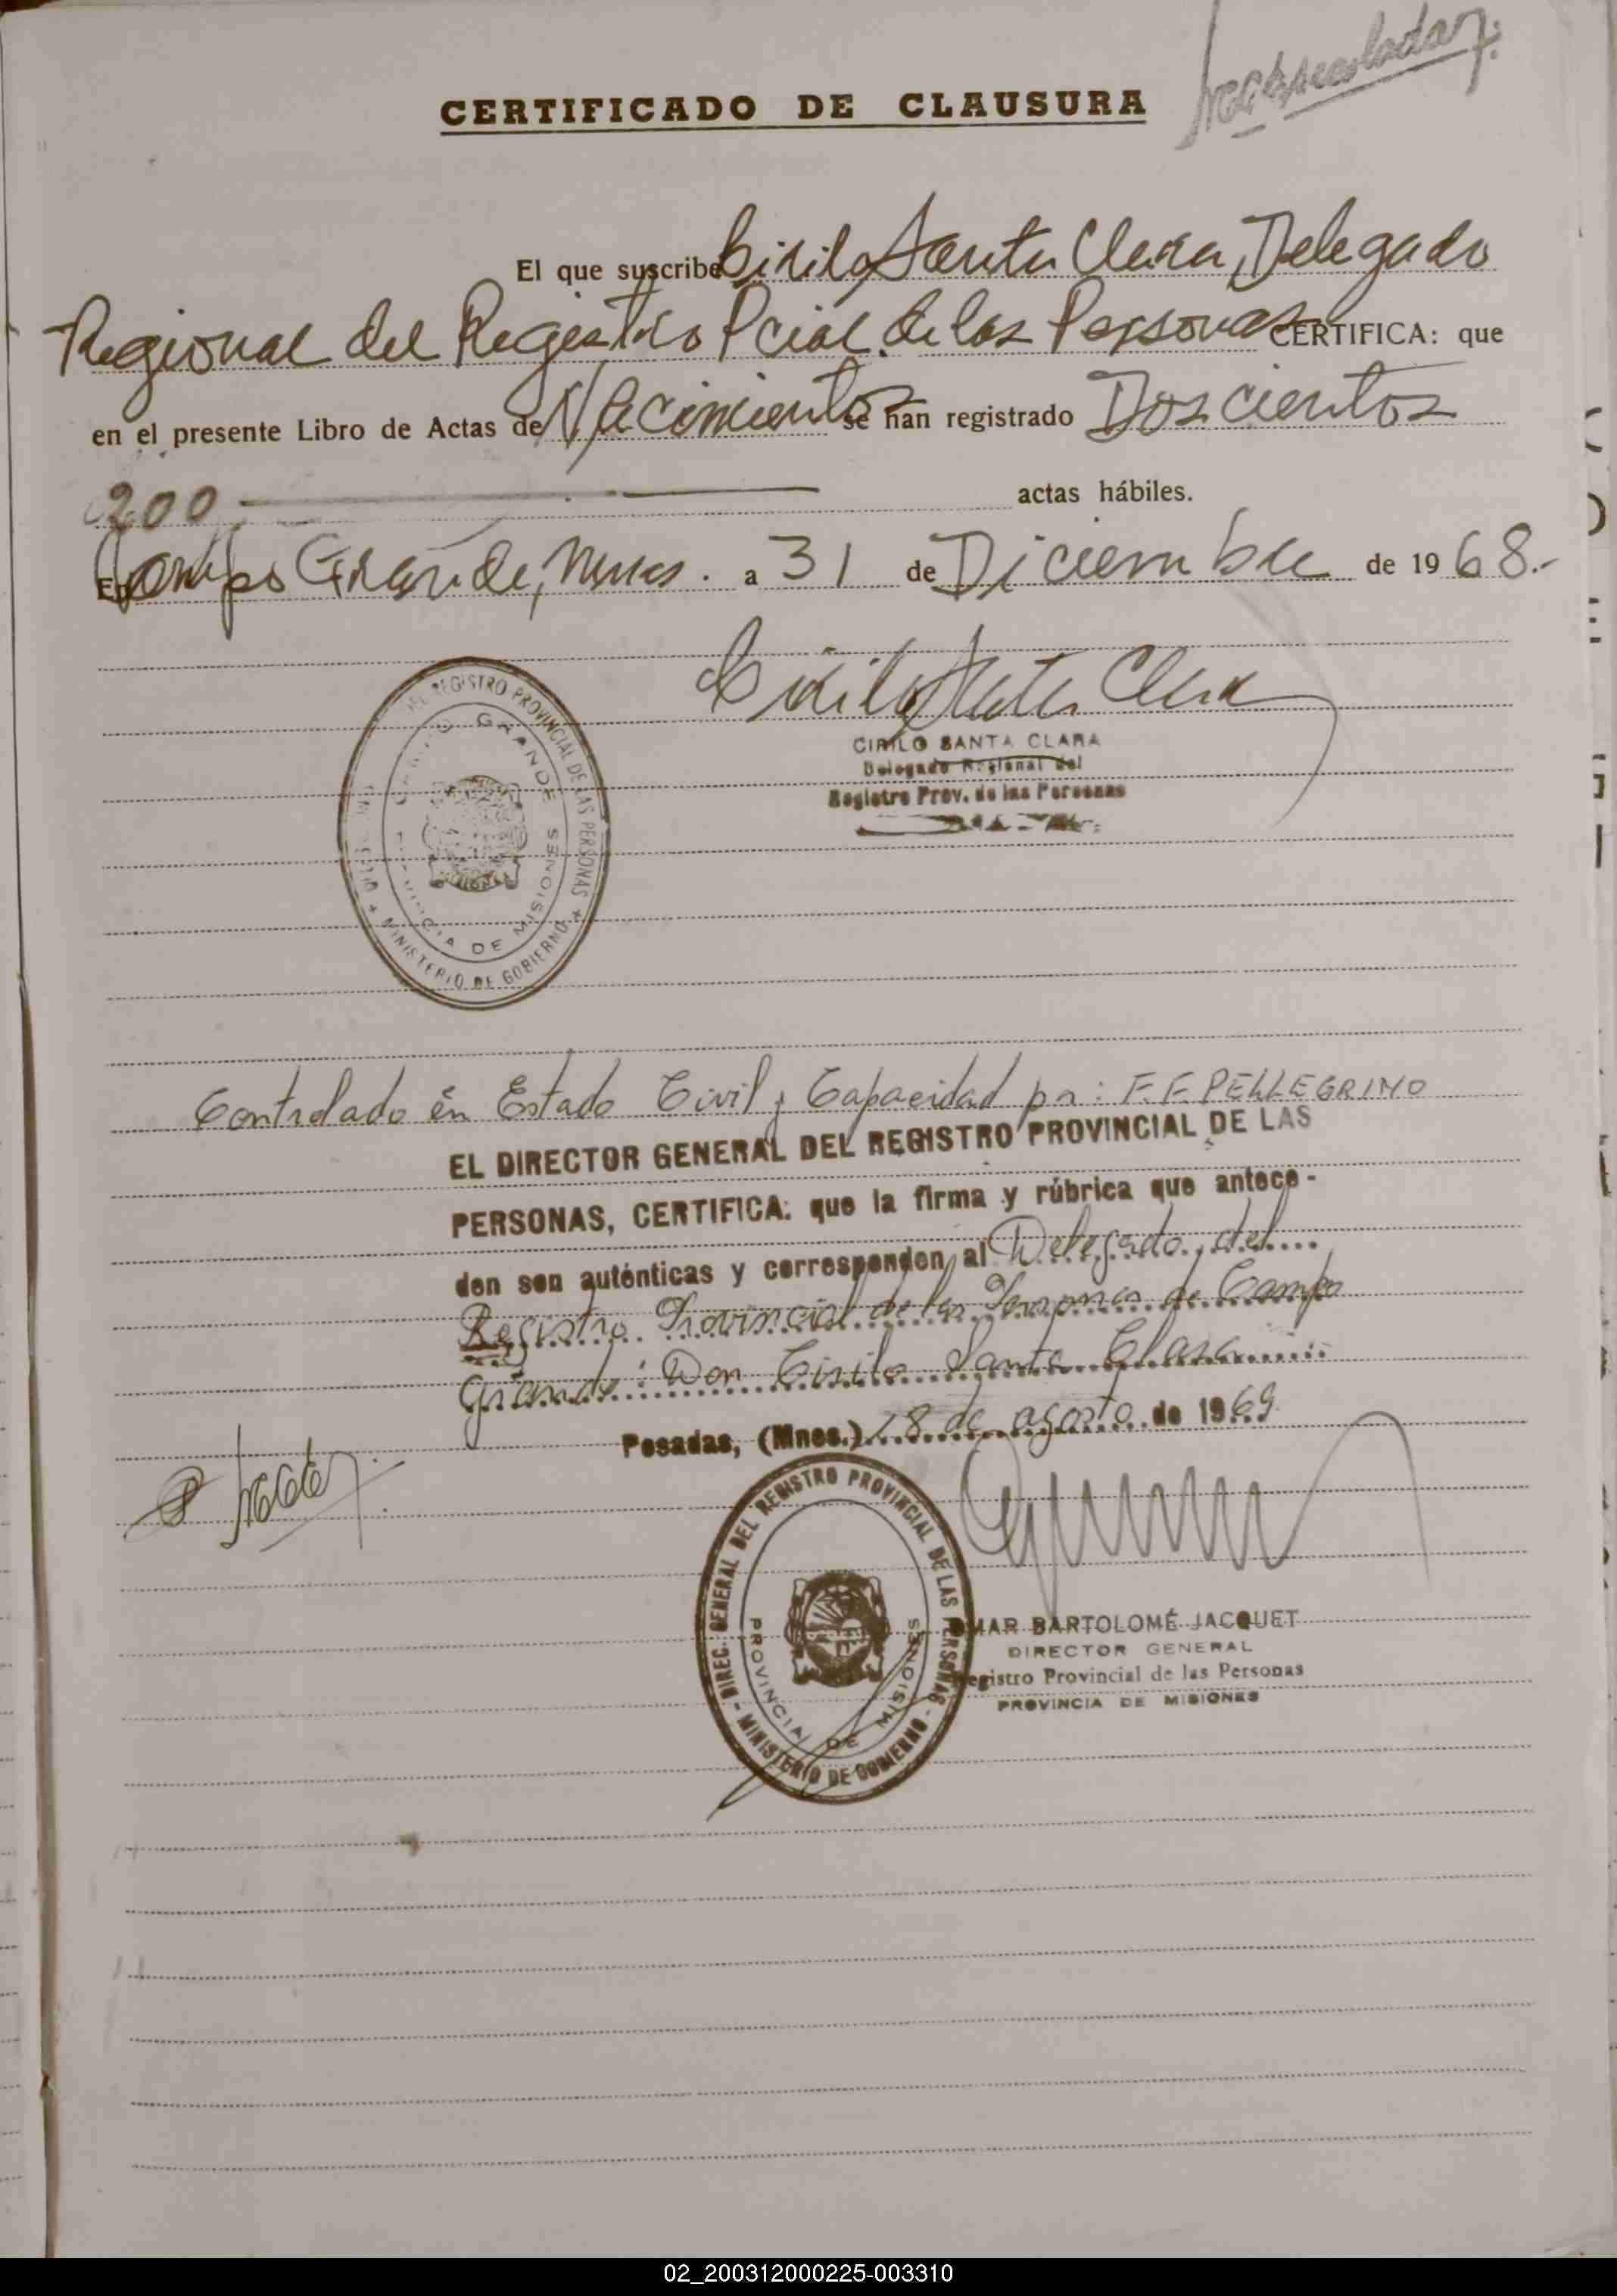 CERTIFICADO DE CLAUSURA
El que suscribe Cirilo Santa Clara, Delegado
Regional del Registro Pcial de las Personas CERTIFICA: que
en el presente Libro de Actas de Nacimientos se han registrado Doscientos
200 actas hábiles.
En Campo Grande, Mnes. a 31 de Diciembre de 1968.-
Cirilo Santa Clara
CIRILO SANTA CLARA
Delegado Regional del
Registro Prov. de las Personas
DEL REGISTRO PROVINCIAL DE LAS PERSONAS
MINISTERIO DE GOBIERNO
GRANDE
PROVINCIA DE MISIONES
Controlado en Estado Civil y Capacidad por: F.F. PELLEGRINO
EL DIRECTOR GENERAL DEL REGISTRO PROVINCIAL DE LAS
PERSONAS, CERTIFICA: que la firma y rúbrica que antece-
den son auténticas y corresponden al Delegado del
Registro Provincial de las Personas de Campo
Grande: Don Cirilo Santa Clara
Posadas, (Mnes.) 18 de agosto de 1969
DIREC. GENERAL DEL REGISTRO PROVINCIAL DE LAS PERSONAS - MINISTERIO DE GOBIERNO -
PROVINCIA DE MISIONES
OMAR BARTOLOMÉ JACQUET
DIRECTOR GENERAL
Registro Provincial de las Personas
PROVINCIA DE MISIONES
02_200312000225-003310